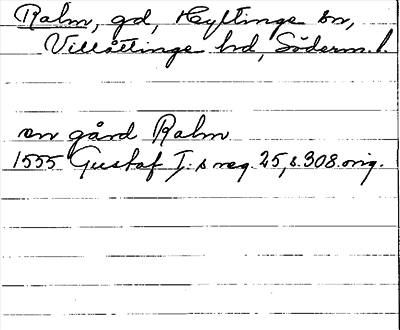 Ralm, gd, Hyltinge sn,
Villåttinge hd, Söderm. l.
en gård Ralm
1555 Gustaf I:s reg. 25, s. 308. orig.